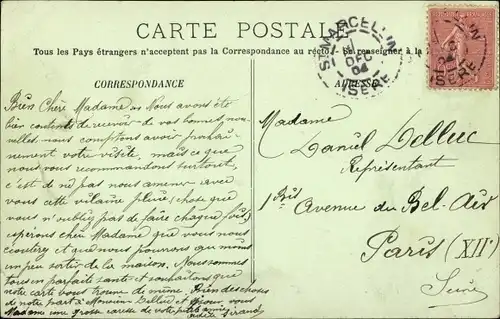 CARTE POSTALE
Tous les Pays étrangers n'acceptent pas la Correspondance au recto. - Se renseigner à la
CORRESPONDANCE
ADRESSE
ST MARCELLIN
1
DEC
04
ISÈRE
LIN
DEC
04
ISÈRE
Bien Chère Madame. Nous avons été
bien contents de recevoir de vos bonnes nou-
velles, nous comptons avoir prochai-
nement votre visite, mais ce que
nous vous recommandons surtout,
c'est de ne pas nous amener avec
vous cette vilaine pluie, chose que
vous n'oubliez pas de faire chaque fois,
espérons chère Madame que vous nous
écouterez et que nous pourrons au moins
un peu sortir de la maison. Nous sommes
tous en parfaite santé et souhaitons que
notre carte vous trouve de même. Bien des choses
de notre part à Monsieur Lelluc et
Madame une grosse caresse de votre petite amie
Madame
Daniel Lelluc
Représentant
1 Bis Avenue du Bel-Air
Paris (XIIe)
Seine